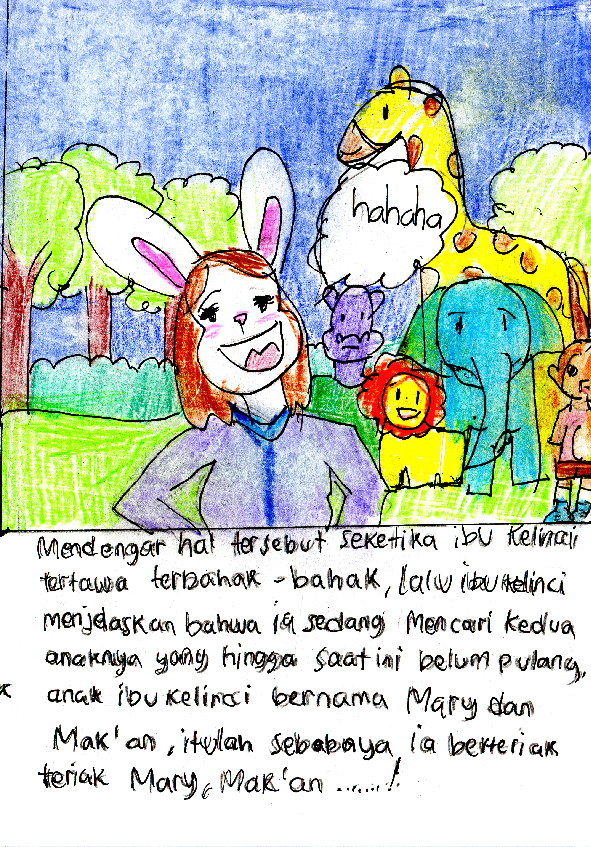 hahaha
Mendengar hal tersebut seketika ibu kelinci
tertawa terbahak - bahak, lalu ibu kelinci
menjelaskan bahwa ia sedang mencari kedua
anaknya yang hingga saat ini belum pulang,
anak ibu kelinci bernama Mary dan
Mak'an, itulah sebabnya ia berteriak
teriak Mary, Mak'an ......!